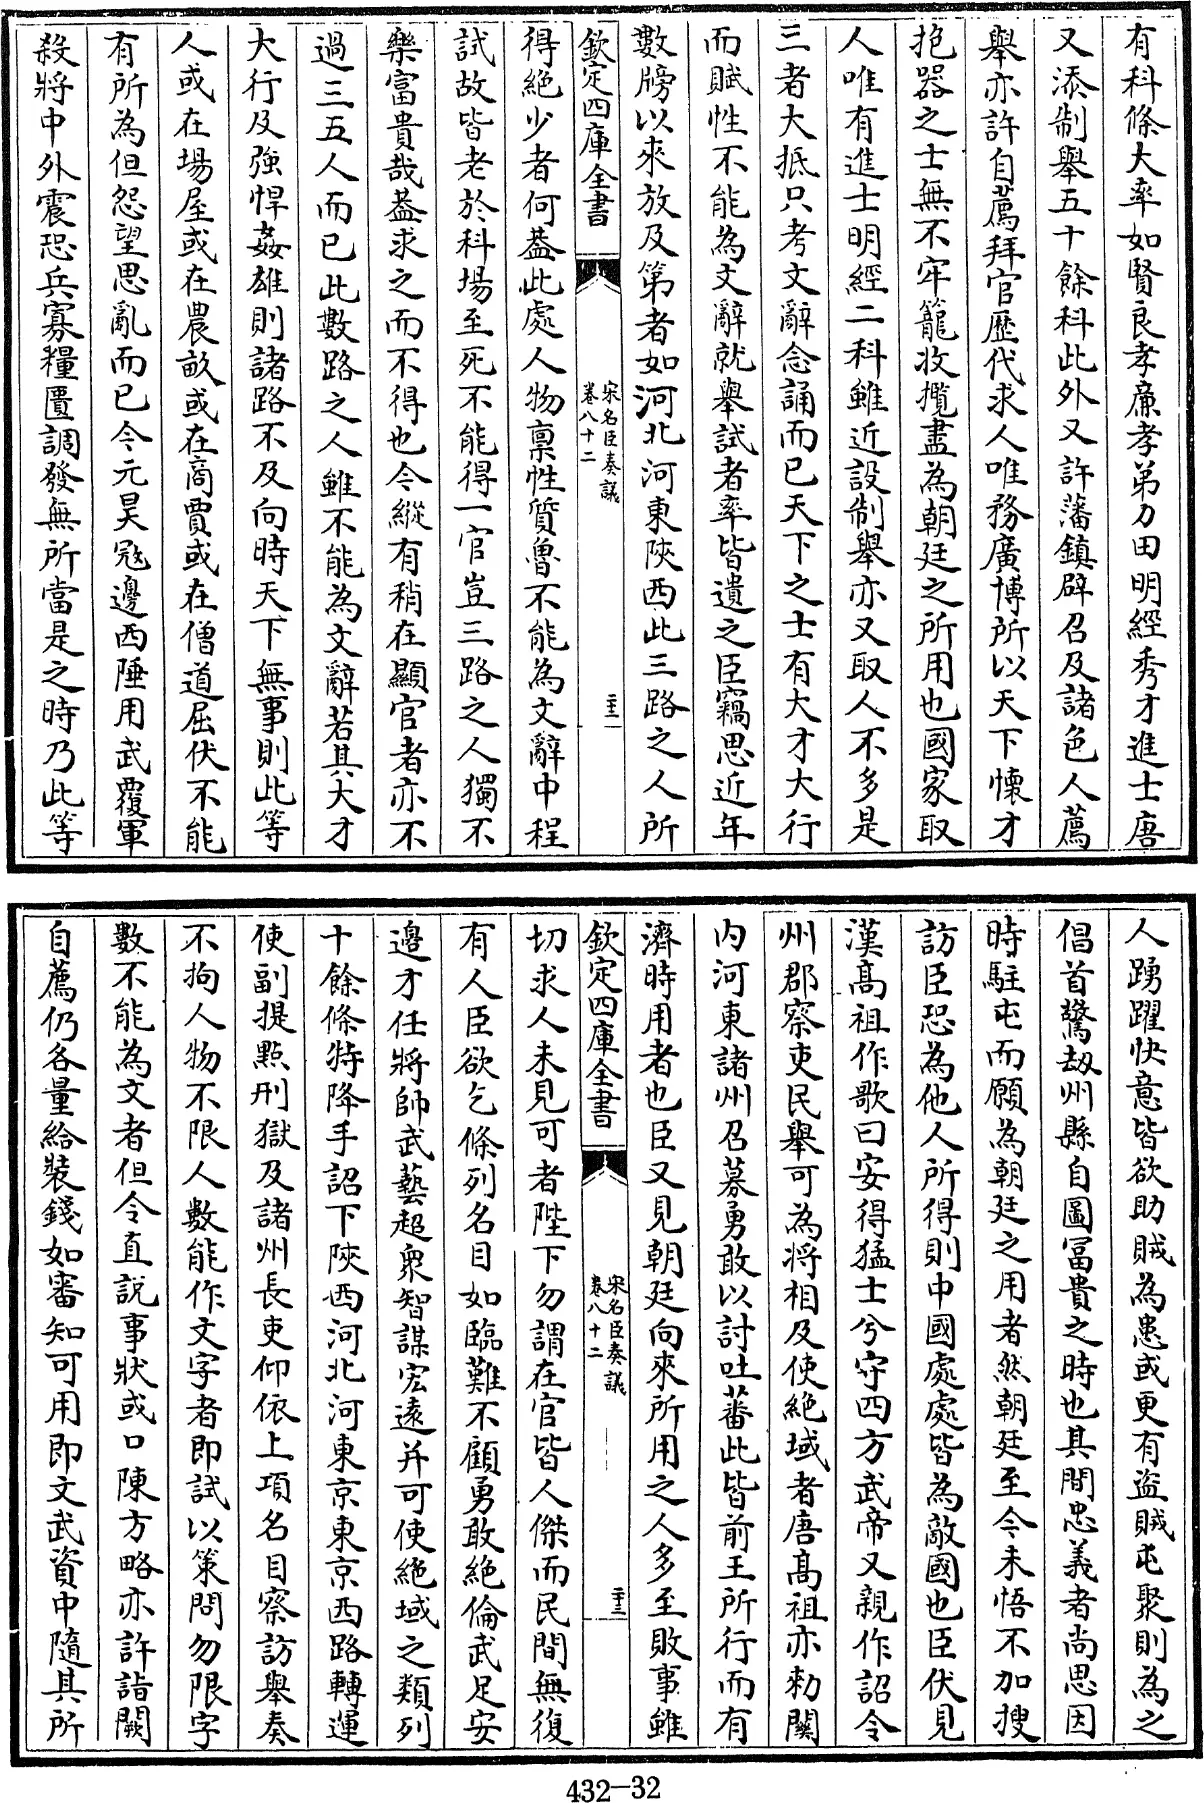 有科條大率如賢良孝廉孝弟力田明經秀才進士唐
又添制舉五十餘科此外又許藩鎮辟召及諸色人薦
舉亦許自薦拜官歷代求人唯務廣博所以天下懷才
抱器之士無不牢籠收攬盡為朝廷之所用也國家取
人唯有進士明經二科雖近設制舉亦又取人不多是
三者大抵只考文辭念誦而已天下之士有大才大行
而賦性不能為文辭就舉試者率皆遺之臣竊思近年
數牓以來放及第者如河北河東陜西此三路之人所
欽定四庫全書
宋名臣奏議
卷八十二
二十二
得絶少者何葢此處人物稟性質魯不能為文辭中程
試故皆老於科場至死不能得一官豈三路之人獨不
樂富貴哉葢求之而不得也今縱有稍在顯官者亦不
過三五人而已此數路之人雖不能為文辭若其大才
大行及強悍姦雄則諸路不及向時天下無事則此等
人或在場屋或在農畝或在商賈或在僧道屈伏不能
有所為但怨望思亂而已今元昊冦邊西陲用武覆軍
殺將中外震恐兵寡糧匱調發無所當是之時乃此等
人踴躍快意皆欲助賊為患或更有盜賊屯聚則為之
倡首驚刼州縣自圖富貴之時也其間忠義者尚思因
時駐屯而願為朝廷之用者然朝廷至今未悟不加搜
訪臣恐為他人所得則中國處處皆為敵國也臣伏見
漢髙祖作歌曰安得猛士兮守四方武帝又親作詔令
州郡察吏民舉可為將相及使絶域者唐髙祖亦勑關
内河東諸州召募勇敢以討吐蕃此皆前王所行而有
濟時用者也臣又見朝廷向來所用之人多至敗事雖
欽定四庫全書
宋名臣奏議
卷八十二
二十三
切求人未見可者陛下勿謂在官皆人傑而民間無復
有人臣欲乞條列名目如臨難不顧勇敢絶倫武足安
邊才任將帥武藝超衆智謀宏遠并可使絶域之類列
十餘條特降手詔下陜西河北河東京東京西路轉運
使副提點刑獄及諸州長吏仰依上項名目察訪舉奏
不拘人物不限人數能作文字者即試以策問勿限字
數不能為文者但令直説事狀或口陳方略亦許詣闕
自薦仍各量給裝錢如審知可用即文武資中隨其所
432-32